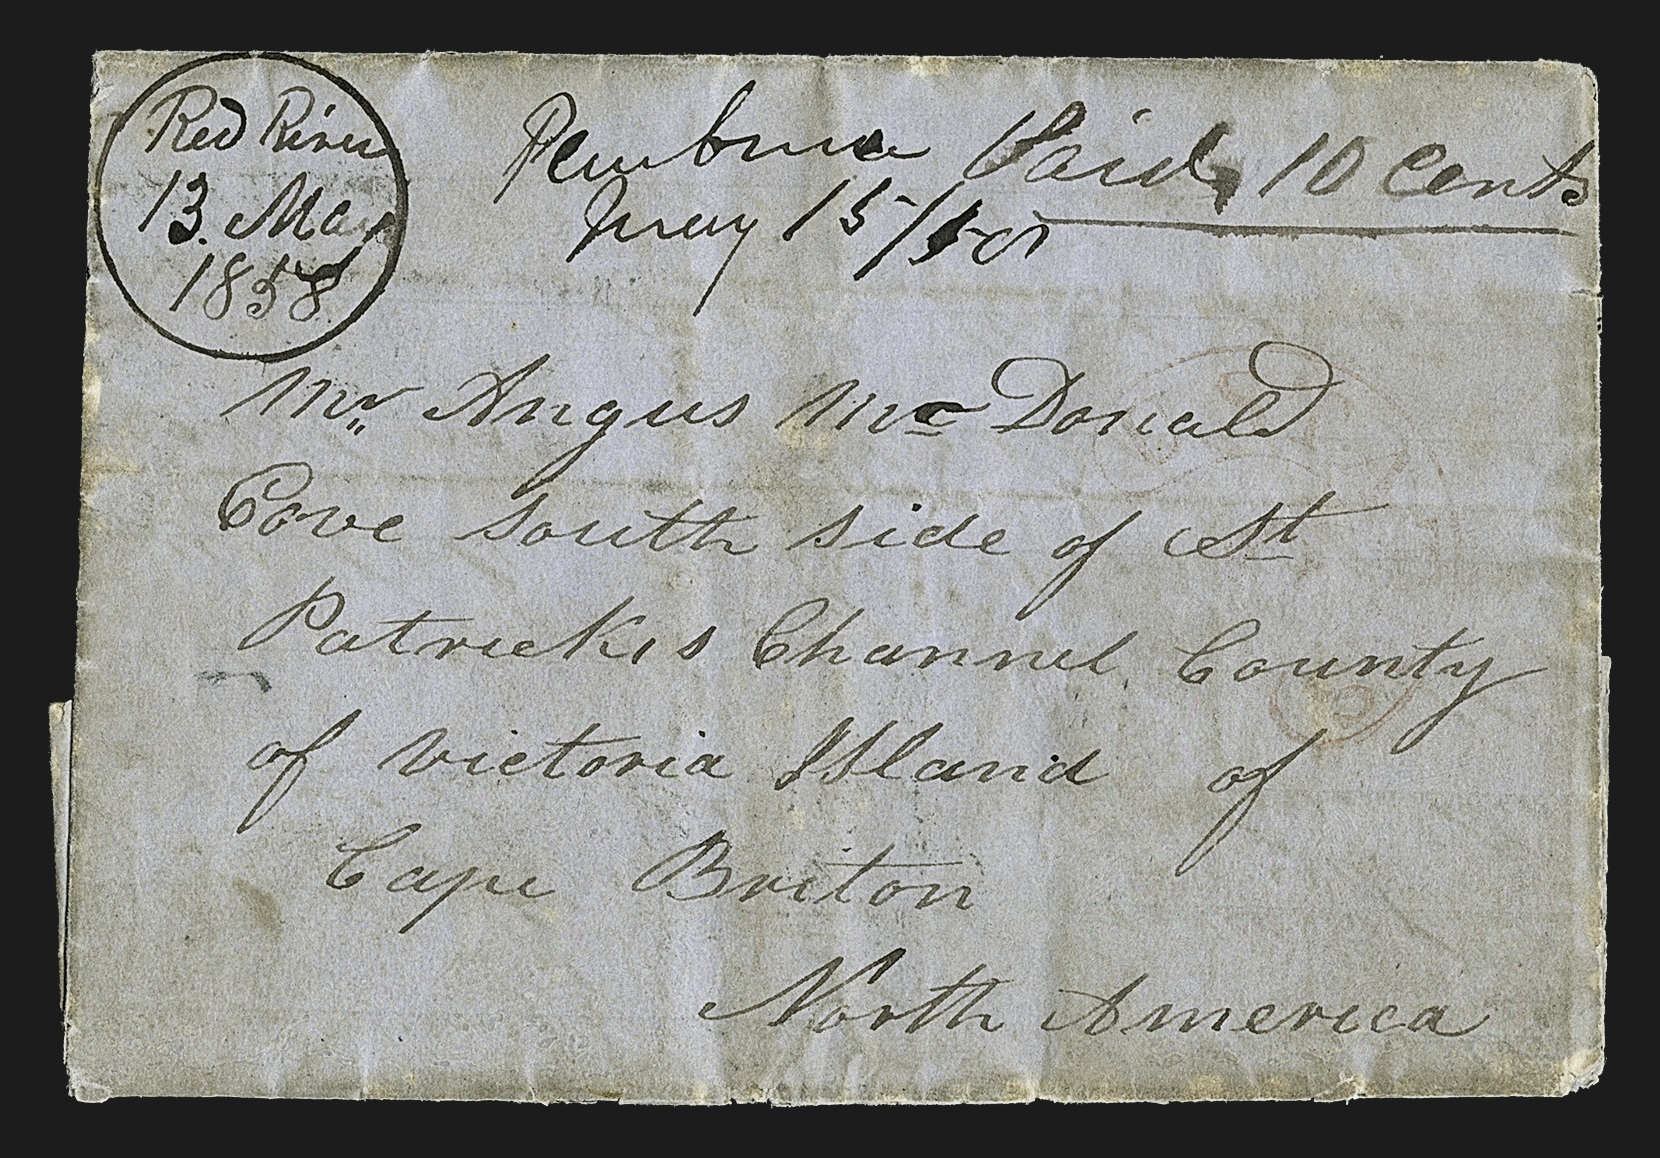 Red River
13. May
1858
Pembina Paid 10 Cents
May 15/58
Mr. Angus McDonald
Cove South side of St
Patrickis Channel County
of Victoria Island of
Cape Briton
North America